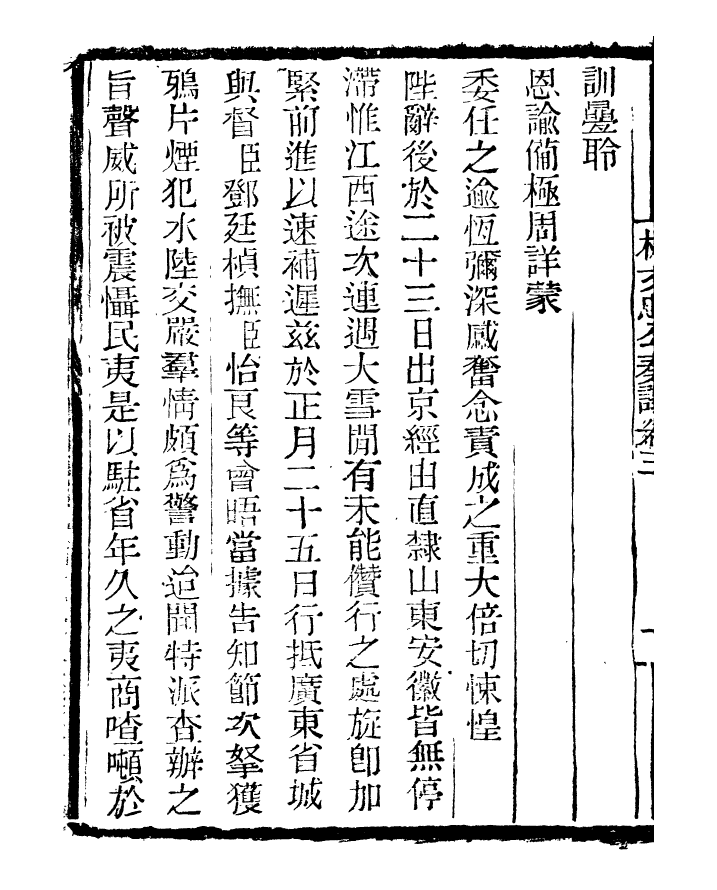 訓疊聆
恩諭僃極周詳蒙
委任之逾恆彌深感奮念責成之重大倍切悚惶
陛辭後於二十三日出京經由直隸山東安徽皆無停
滯惟江西途次連遇大雪閒有未能儹行之處旋卽加
緊前進以速補遲茲於正月二十五日行抵廣東省城
與督臣鄧廷楨撫臣怡良等會晤當據吿知節次拏獲
鴉片煙犯水陸交嚴羣情頗爲警動迨聞特派查辦之
旨聲威所被震懾民夷是以駐省年久之夷商喳噸於
林文忠公奏議卷三